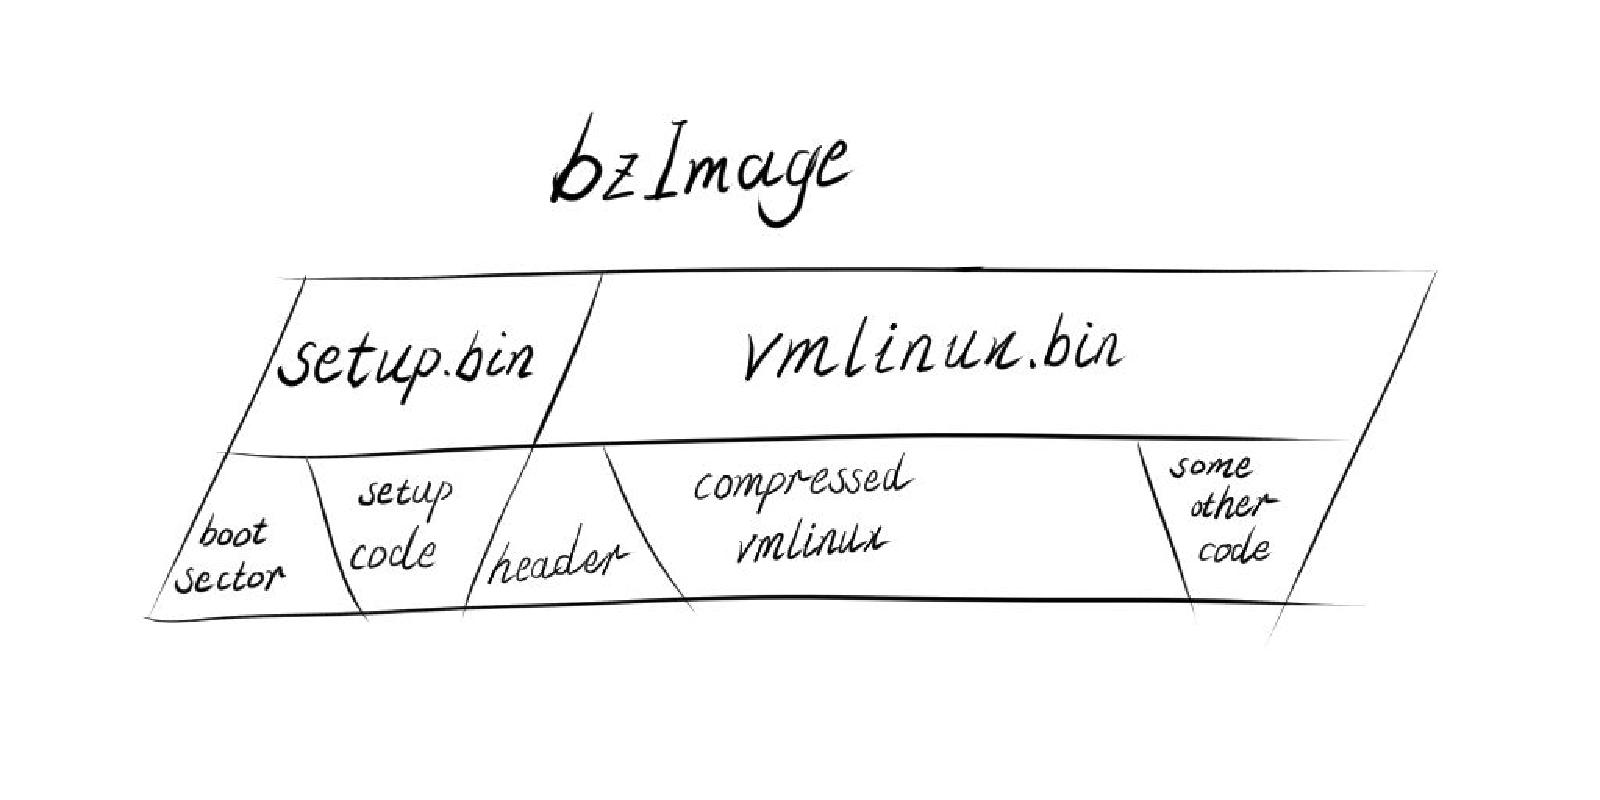 bzImage
setup.bin
vmlinux.bin
boot
sector
setup
code
header
compressed
vmlinux
some
other
code